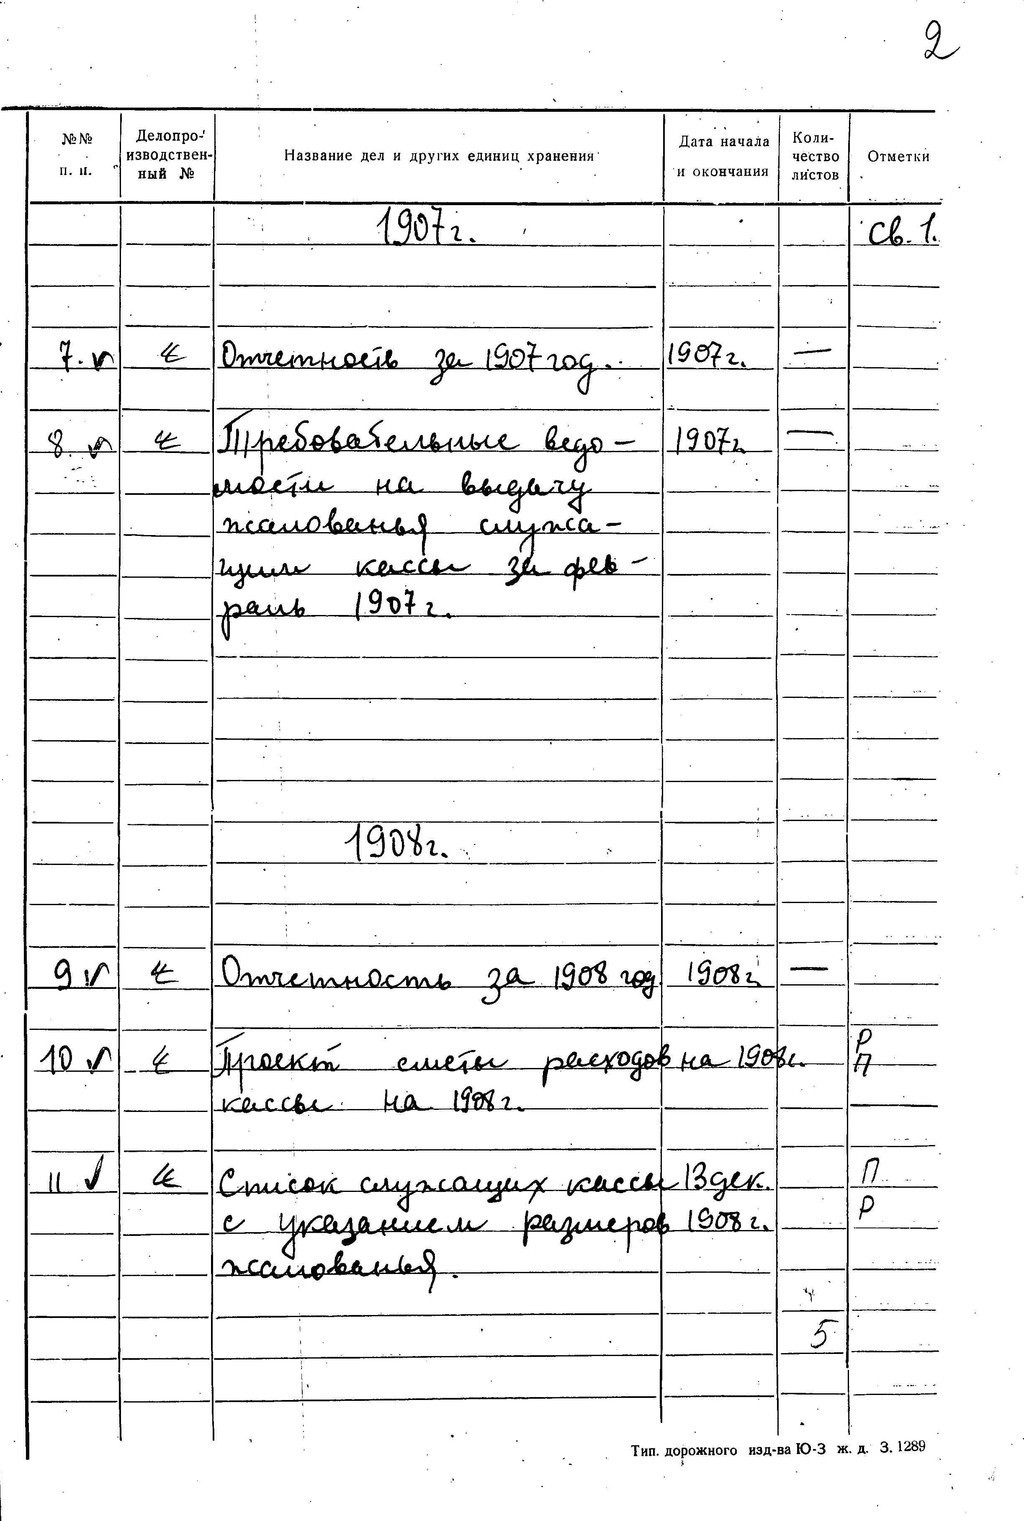 2
№№ п. п.
Делопро-
изводствен-
ный №
Название дел и других единиц хранения
Дата начала
и окончания
Коли-
чество
листов
Отметки
1907г. Св. 1.
7. Отчетность за 1907 год. 1907г. —
8. Требовательные ведо- 1907г. —
мости на выдачу
жалованья служа-
щим кассы за фев-
раль 1907г.
1908г.
9 Отчетность за 1908 год 1908г. —
10 Проект сметы расходов на 1908г. Р П
кассы на 1908г.
11 Список служащих кассы 13 дек. П
с указанием размеров 1908г. Р
жалованья.
5
Тип. дорожного изд-ва Ю-З ж. д. З. 1289